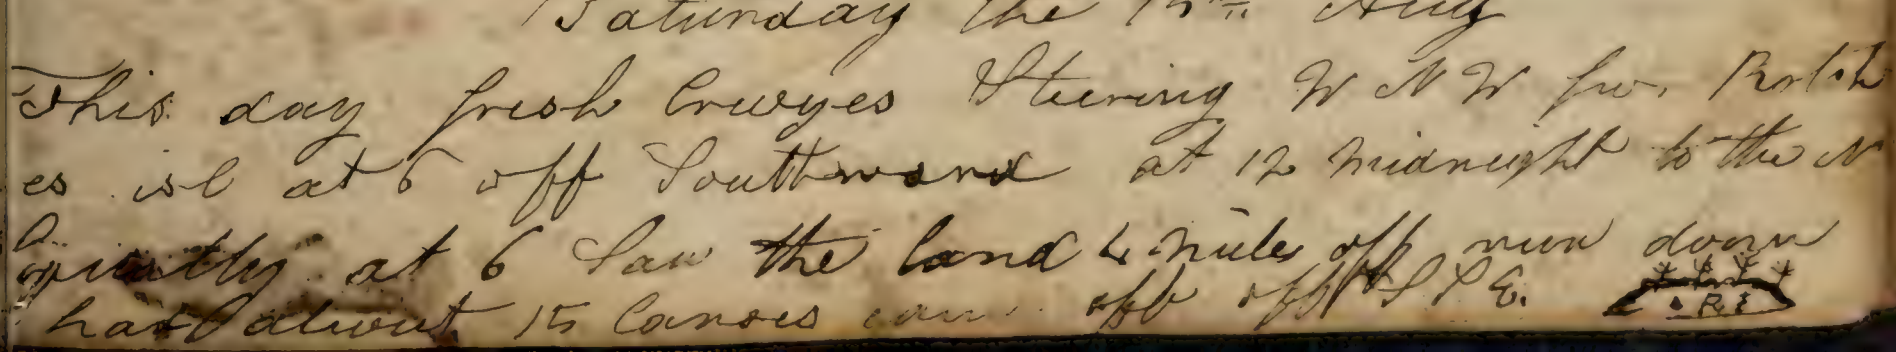 Saturday the 15th Aug
This day fresh Breezes Steering W N W for Rotch
es isl at 6 off Southward at 12 midnight to the N
at 6 Saw the land 4 miles off run down
had about 15 Canoes off S S E.
R I